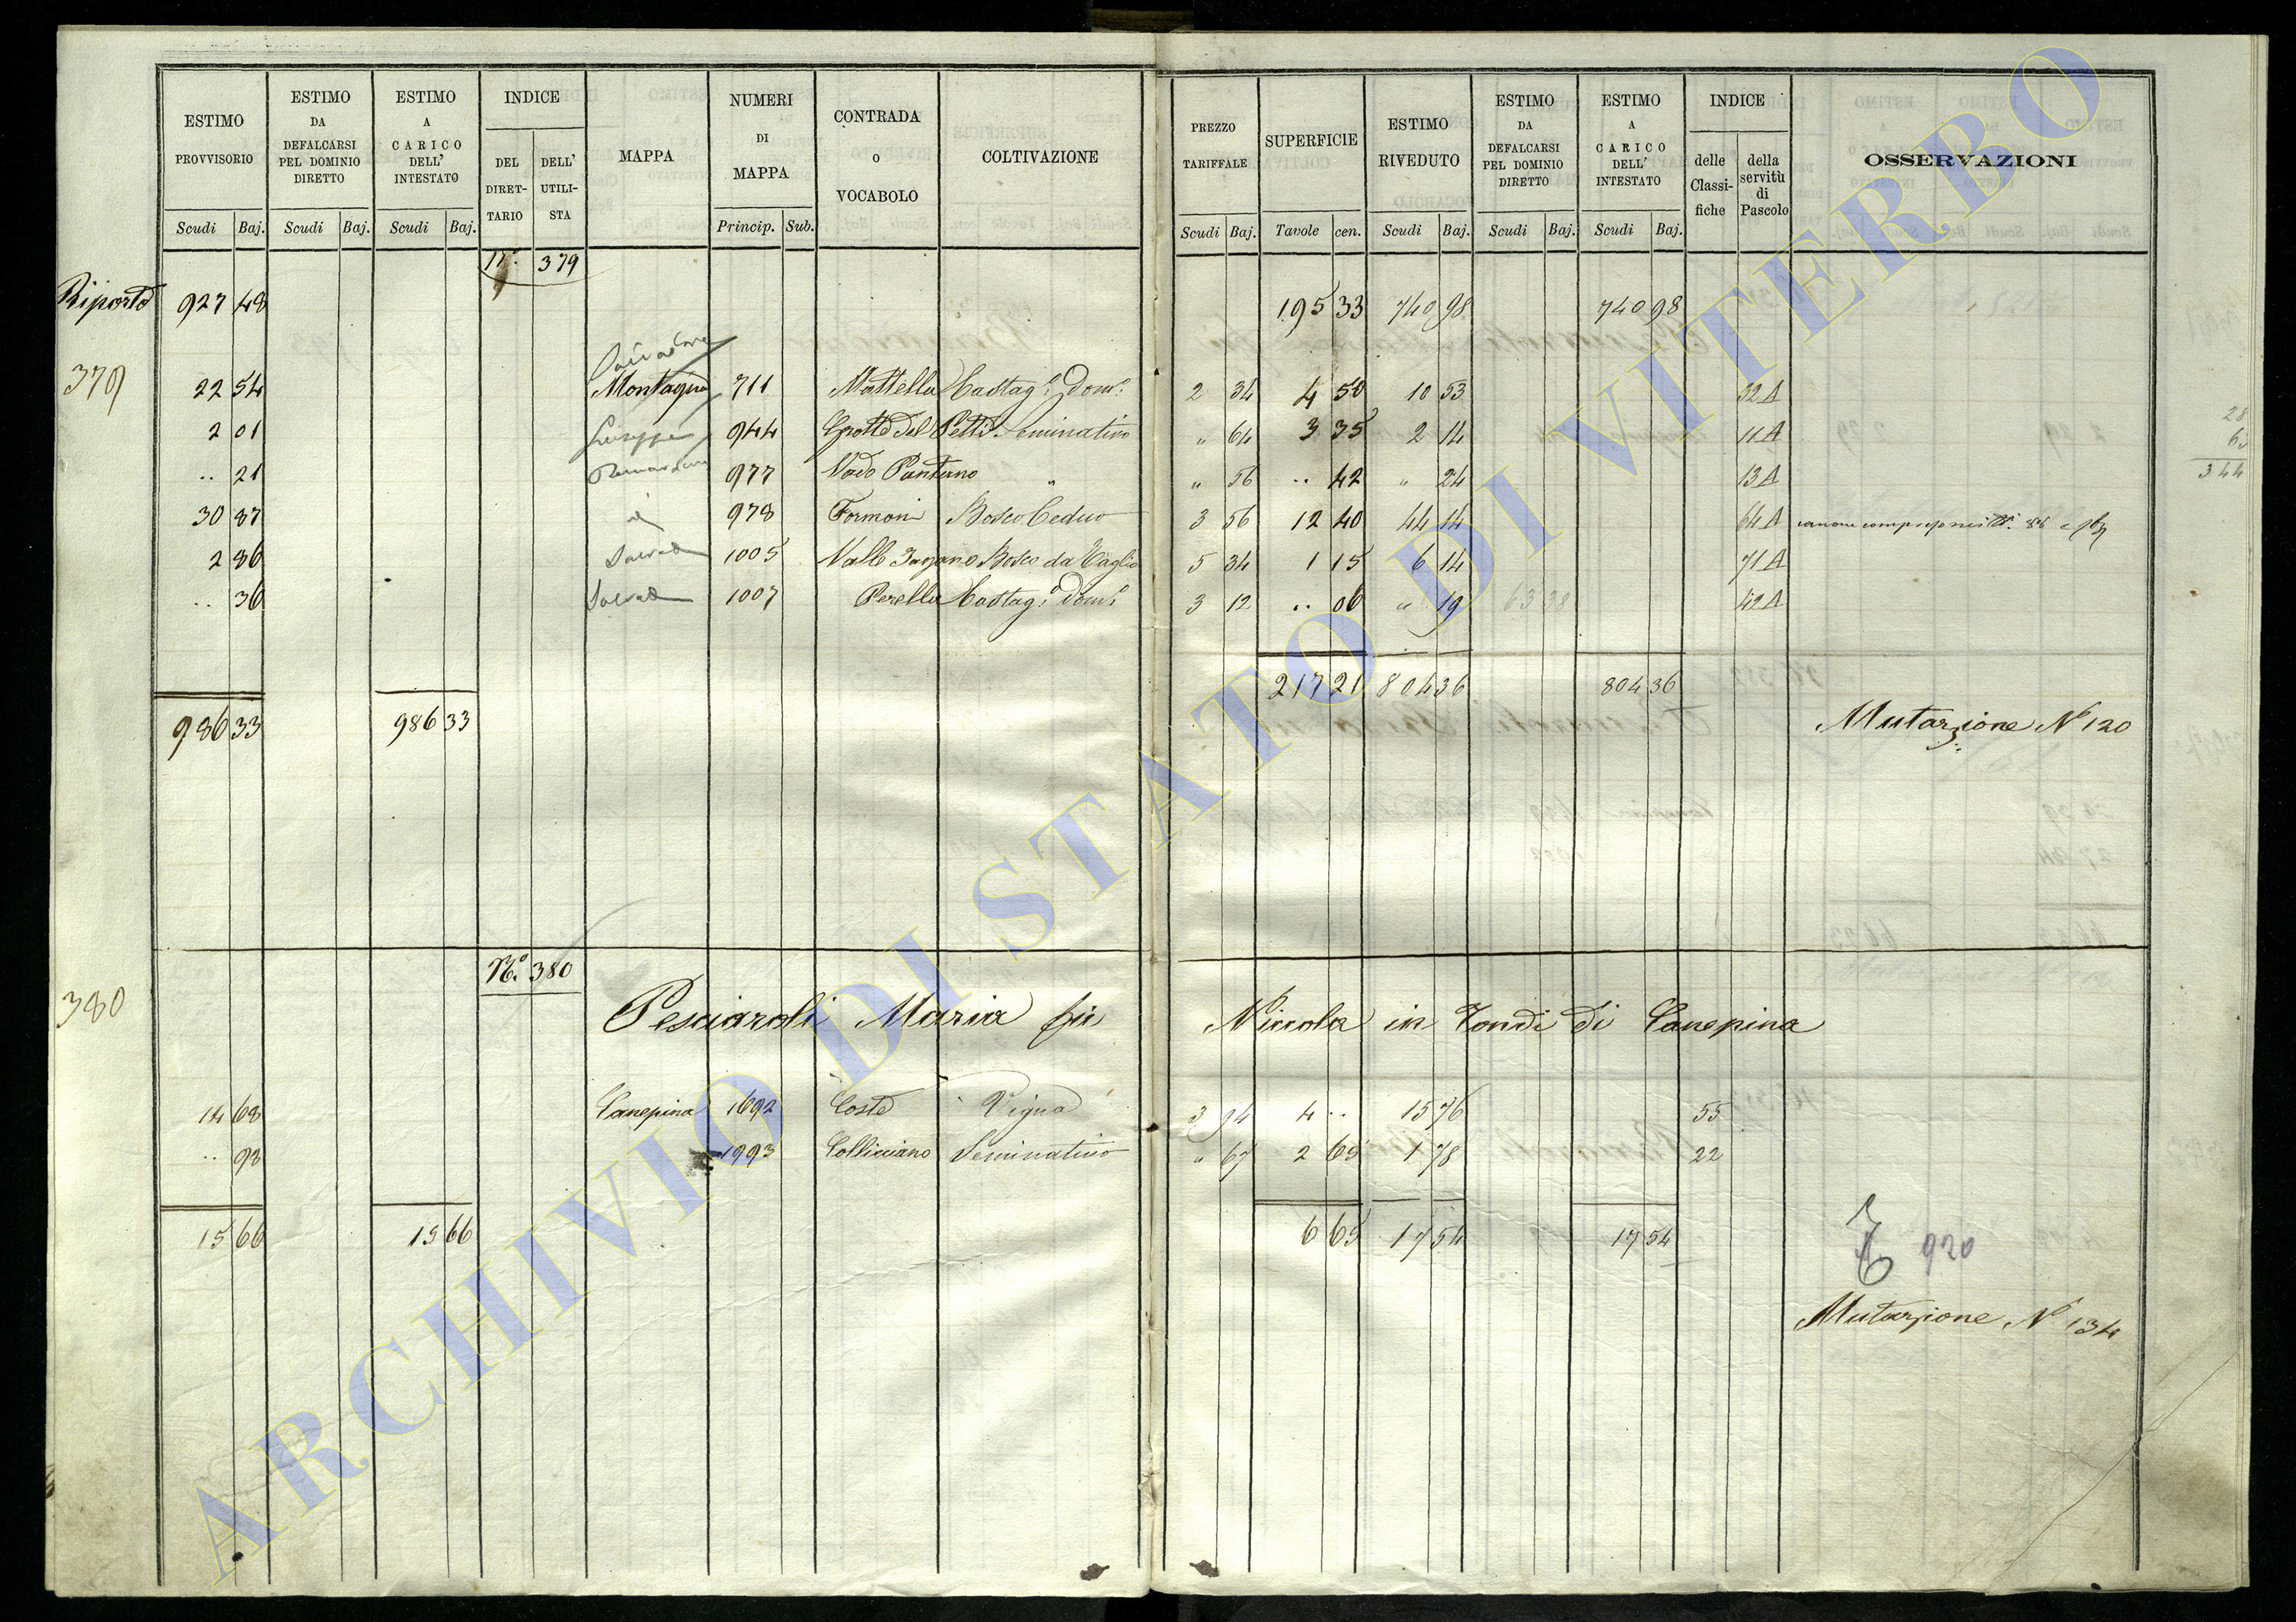 ESTIMO PROVVISORIO Scudi Baj.
ESTIMO DA DEFALCARSI PEL DOMINIO DIRETTO Scudi Baj.
ESTIMO A CARICO DELL' INTESTATO Scudi Baj.
INDICE DEL DIRET-TARIO DELL' UTILI-STA
MAPPA
NUMERI DI MAPPA Princip. Sub.
CONTRADA O VOCABOLO
COLTIVAZIONE
PREZZO TARIFFALE Scudi Baj.
SUPERFICIE Tavole cen.
ESTIMO RIVEDUTO Scudi Baj.
ESTIMO DA DEFALCARSI PEL DOMINIO DIRETTO Scudi Baj.
ESTIMO A CARICO DELL' INTESTATO Scudi Baj.
INDICE delle Classi-fiche della servitù di Pascolo
OSSERVAZIONI
N.° 379
Riporto 927 48 195 33 740 98 740 98
379
22 54 Montagna 711 Mattella Castag.° Dom.° 2 34 4 50 10 53 32 A
2 01 Giuseppe 944 Grotte del Petti Seminativo " 64 3 35 2 14 11 A
.. 21 977 Vado Pantano " " 56 .. 42 " 24 13 A
30 87 id 978 Formoni Bosco Ceduo 3 56 12 40 44 14 64 A
2 86 1005 Valle Bosco da Taglio 5 34 1 15 6 14 71 A
.. 36 1007 Perella Castag.° Dom.° 3 12 .. 06 " 19 63 38 42 A
28
344
986 33 986 33 217 21 804 36 804 36
Mutazione N° 120
N.° 380
380
Pesciaroli Maria fu Niccola in Fondi di Canepina
14 68 Canepina 1692 Coste Vigna 3 94 4 .. 15 76 55
.. 98 1993 Collicciano Seminativo " 67 2 65 1 78 22
15 66 15 66 6 65 17 54 17 54
920
Mutazione N° 134
ARCHIVIO DI STATO DI VITERBO